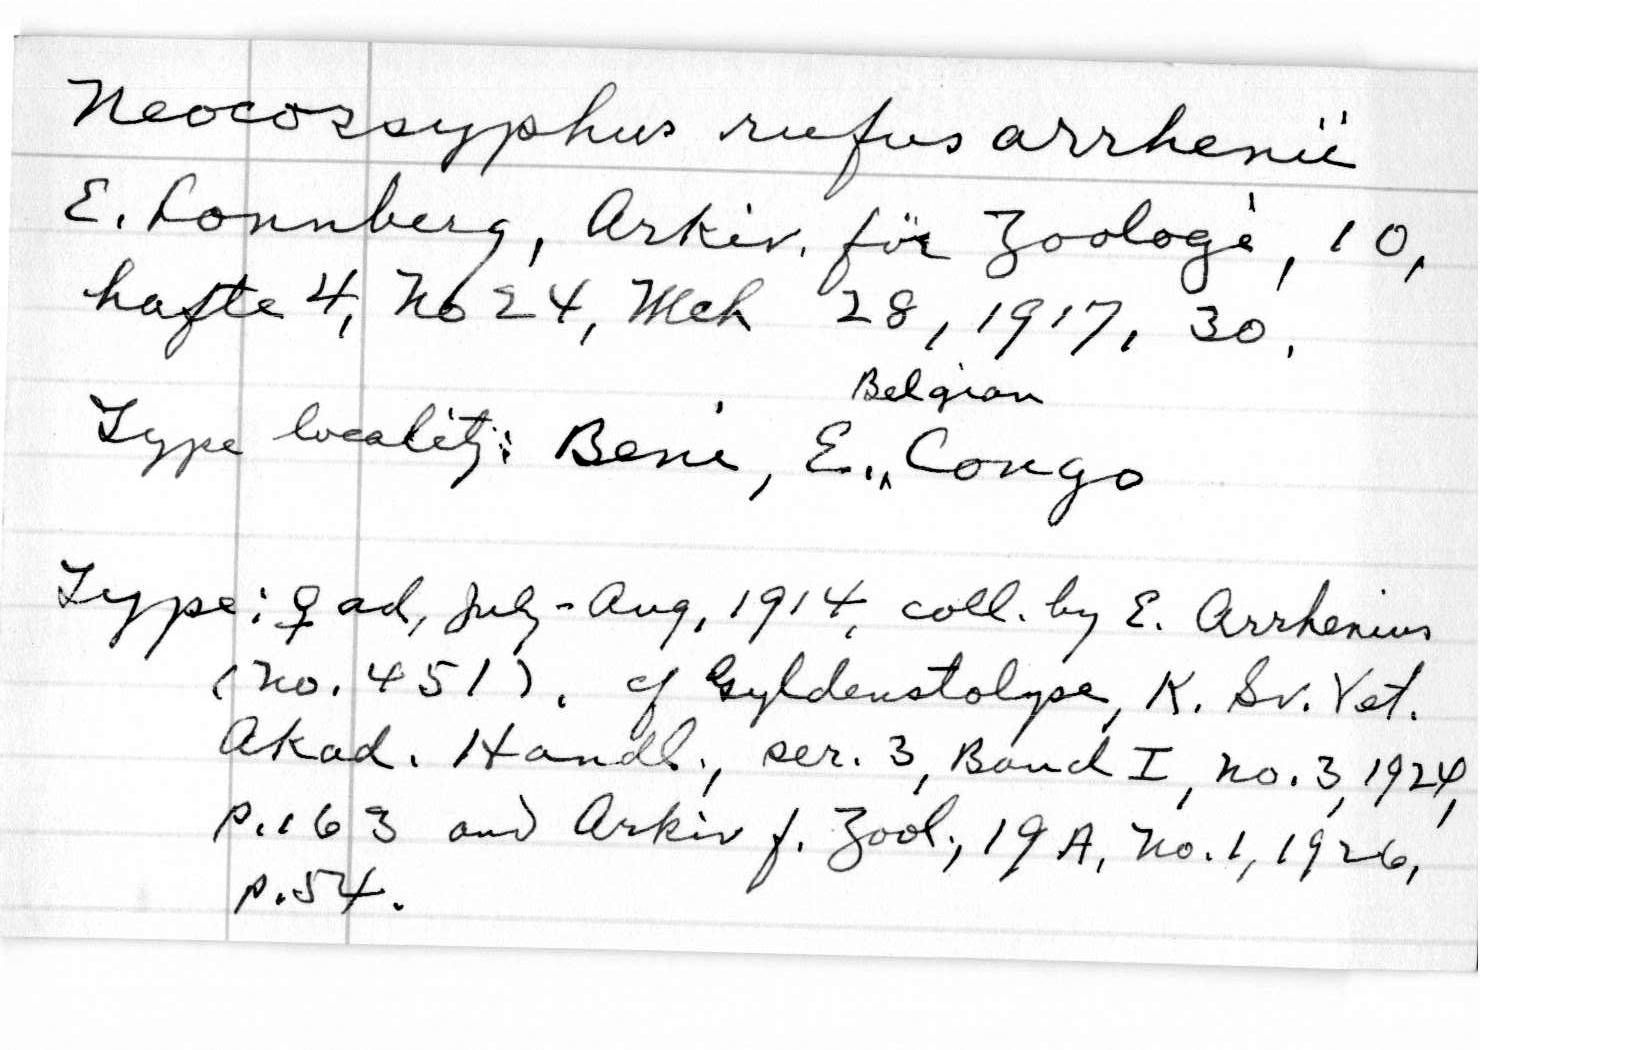 Neocossyphus rufus arrhenii
E. Lonnberg, Arkiv. för Zoologi, 10,
hafte 4, No 24, Mch 28, 1917, 30.
Type locality: Beni, E., Belgian Congo
Type: ♀ ad, July - Aug, 1914, coll. by E. Arrhenius
(no. 451). cf Gyldenstolpe, K. Sv. Vet.
Akad. Handl., ser. 3, Band I, no. 3, 1924,
p. 163 and Arkiv f. Zool., 19 A, No. 1, 1926,
p. 54.